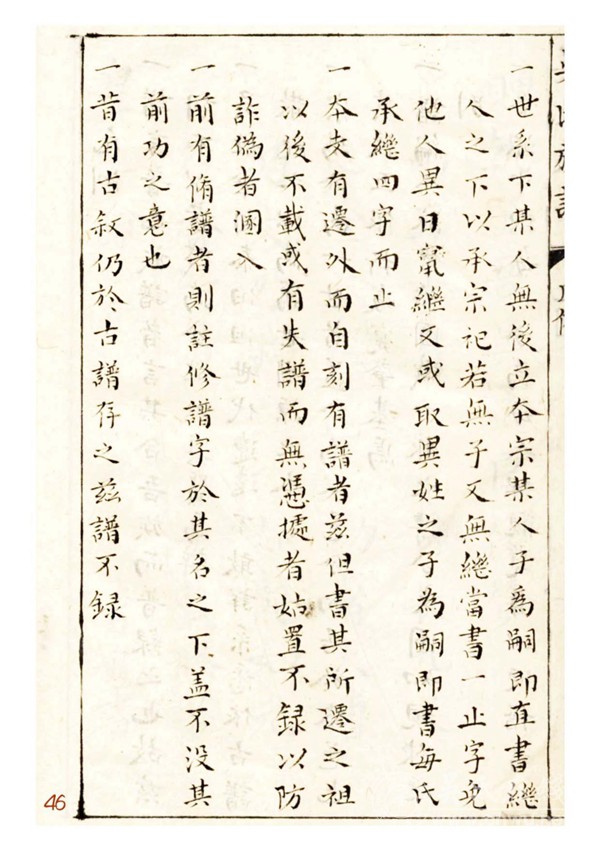 一世系下某人無後立本宗某人子爲嗣即直書繼
人之下以承宗祀若無子又無繼當書一止字免
他人異日竄繼又或取異姓之子為嗣即書每氏
承繼四字而止
一本支有遷外而自刻有譜者茲但書其所遷之祖
以後不載或有失譜而無憑據者姑置不録以防
詐偽者溷入
一前有脩譜者則註修譜字於其名之下蓋不没其
前功之意也
一昔有古敘仍於古譜存之茲譜不録
46